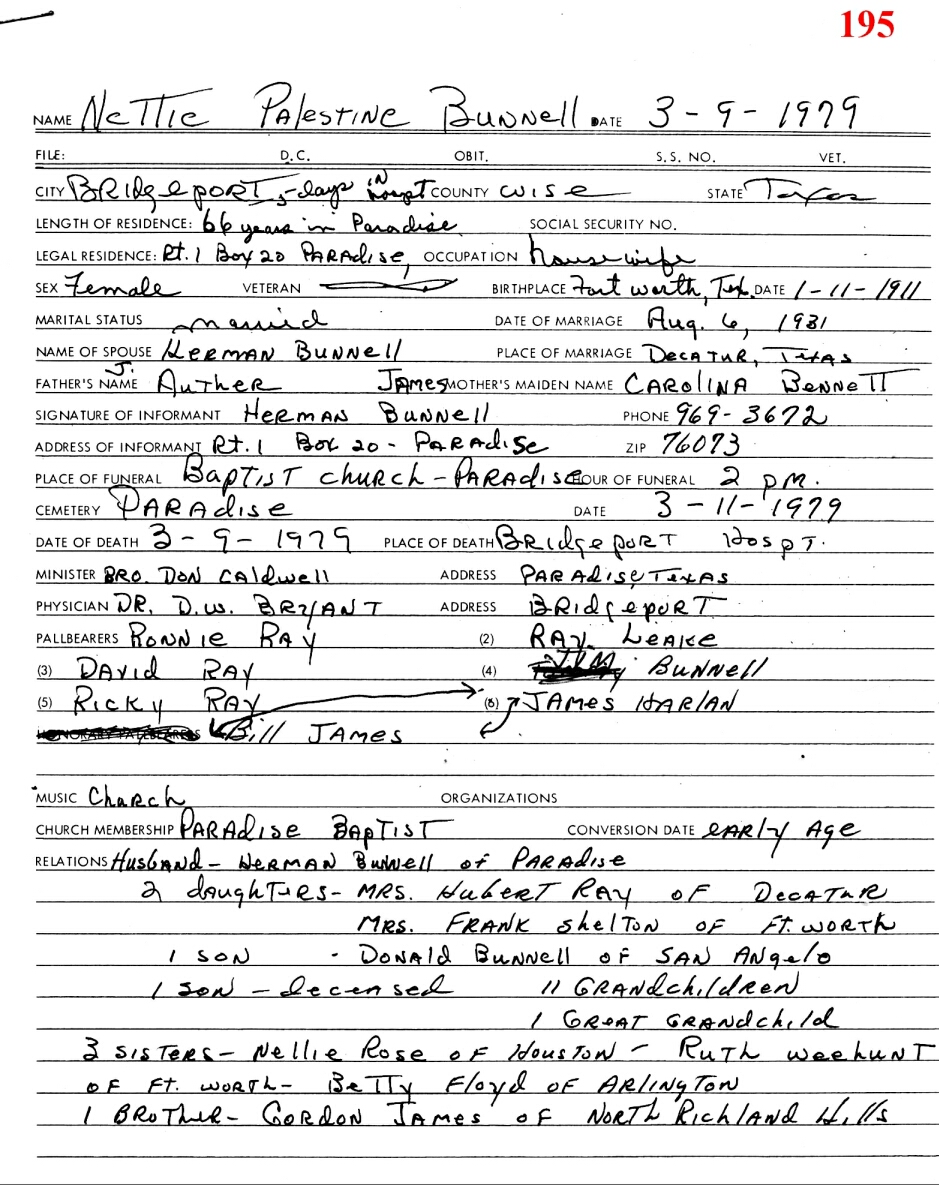 195
NAME NeTTie PAlesTiNe BuNNell DATE 3-9-1979
FILE: D.C. OBIT. S.S. NO. VET.
CITY BRidgepoRT 5-days in hospt COUNTY wise STATE Texas
LENGTH OF RESIDENCE: 66 years in Paradise SOCIAL SECURITY NO.
LEGAL RESIDENCE: Rt. 1 Box 20 PARAdise, OCCUPATION housewife
SEX Female VETERAN BIRTHPLACE Fort worth, Tex. DATE 1-11-1911
MARITAL STATUS married DATE OF MARRIAGE Aug. 6, 1931
NAME OF SPOUSE HeRMAN BuNNell PLACE OF MARRIAGE DecATuR, Texas
FATHER'S NAME J. AuTher JAMes MOTHER'S MAIDEN NAME CAROliNA BeNNeTT
SIGNATURE OF INFORMANT HeRMAN BuNNell PHONE 969-3672
ADDRESS OF INFORMANT Rt. 1 Box 20 - PARAdise ZIP 76073
PLACE OF FUNERAL BapTisT chuRch - PARAdise HOUR OF FUNERAL 2 pM.
CEMETERY PARAdise DATE 3-11-1979
DATE OF DEATH 3-9-1979 PLACE OF DEATH BRidgepoRT HospT.
MINISTER BRO. DoN CAldwell ADDRESS PARAdise, TexAs
PHYSICIAN DR. D.W. BRYANT ADDRESS BRidgepoRT
PALLBEARERS RoNNie RAY (2) RAY LeAke
(3) DAvid RAY (4) BuNNell
(5) Ricky RAY (6) JAMes HARlAN
HONORARY PALLBEARERS Bill JAMes
MUSIC ChuRch ORGANIZATIONS
CHURCH MEMBERSHIP PARAdise BApTisT CONVERSION DATE eARly Age
RELATIONS HusbANd - HeRMAN BuNNell of PARAdise
2 dAughTeRs - MRS. HubeRT RAY of DecATuR
MRS. FRANK SheltoN of FT. woRTh
1 soN - DoNAld BuNNell of SAN ANgelo
1 soN - deceased 11 GRANdchildReN
1 GReAT GRANdchild
3 sisTeRs - Nellie Rose of HousToN - RuTh weehuNT
of FT. woRTh - BeTTy Floyd of ARliNgToN
1 BRoTheR - GoRdoN JAMes of NoRTh RichlANd Hills